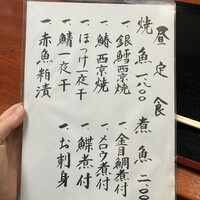 昼定食
焼魚 一、八〇〇
一、銀鱈西京焼
一、鰆西京焼
一、ほっけ一夜干
一、鯖一夜干
一、赤魚粕漬
煮魚 二、一〇〇
一、金目鯛煮付
一、メロウ煮付
一、鰈煮付
一、お刺身